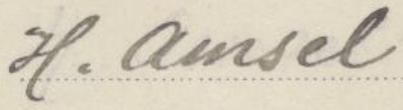 H. Amsel